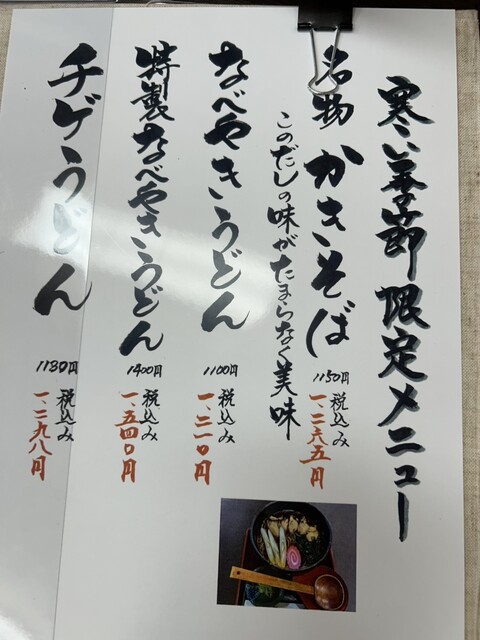 寒い季節 限定メニュー
名物 かきそば
1150円 税込み
一、二六五円
このだしの味がたまらなく美味
なべやきうどん
1100円 税込み
一、二一〇円
特製なべやきうどん
1400円 税込み
一、五四〇円
チゲうどん
1180円 税込み
一、二九八円